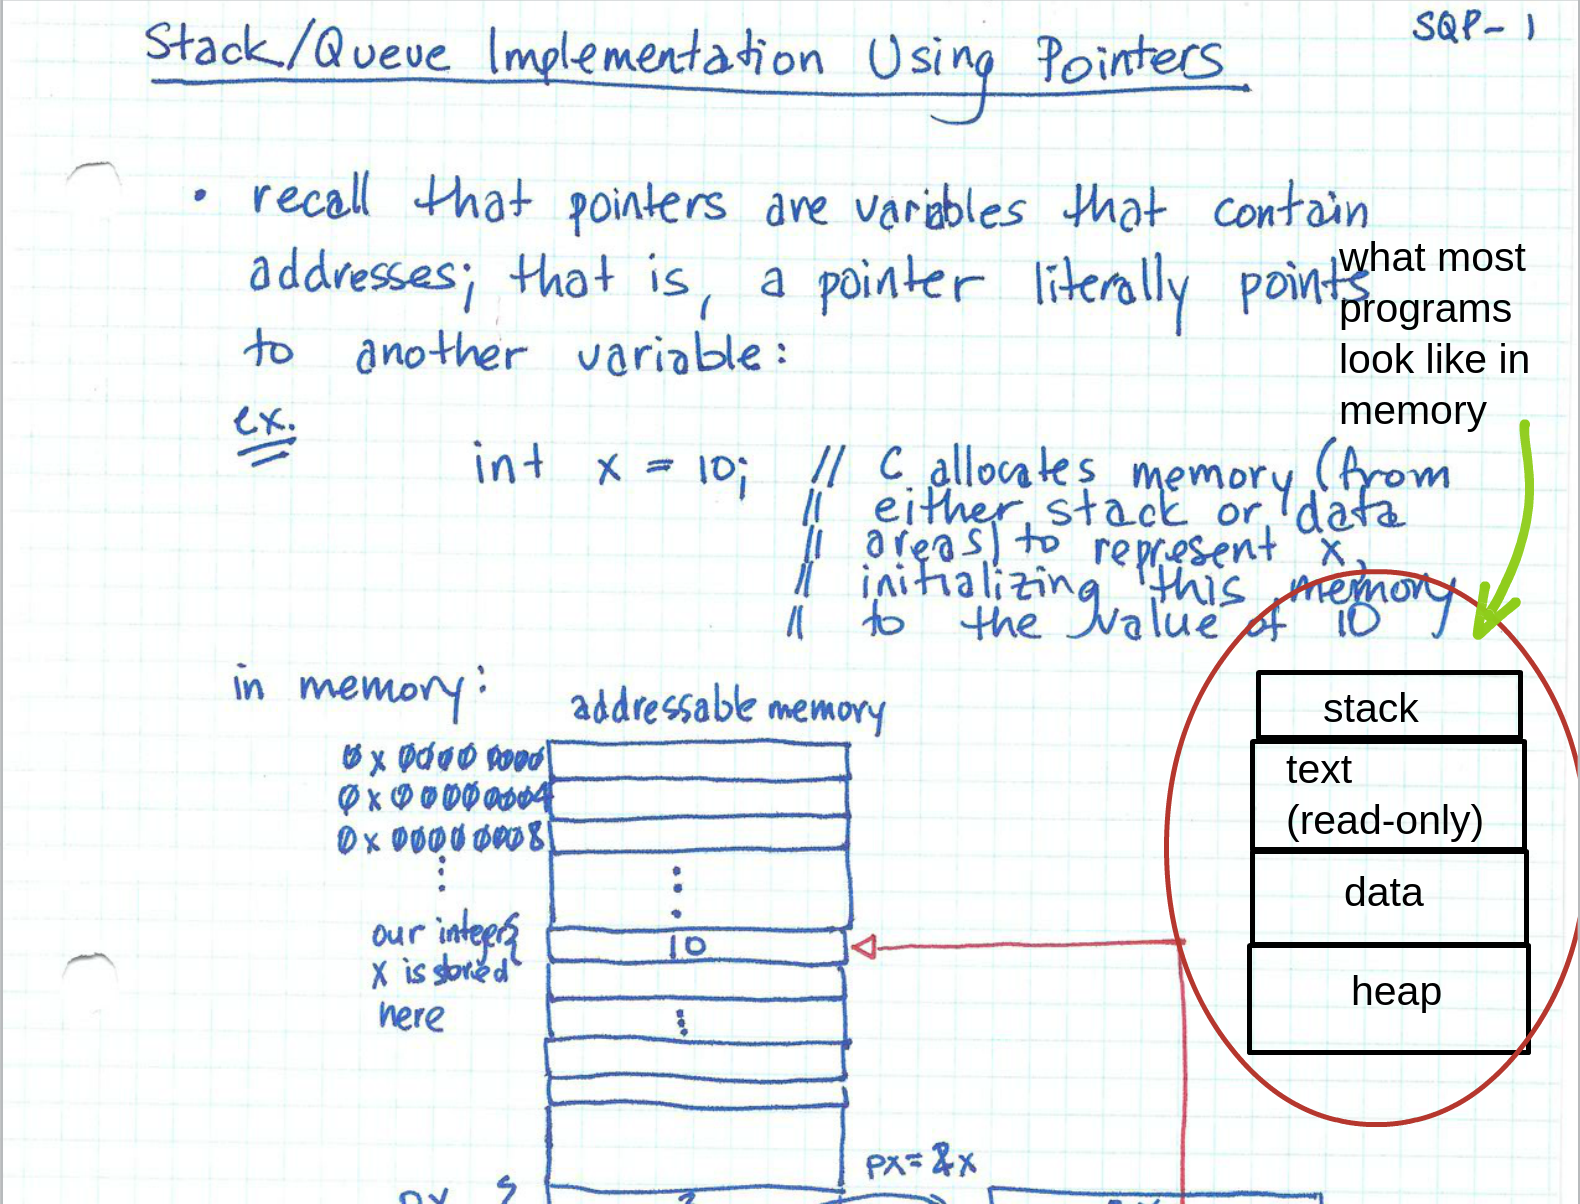 SQP-1
Stack/Queue Implementation Using Pointers
• recall that pointers are variables that contain
addresses; that is, a pointer literally points
to another variable:
what most
programs
look like in
memory
ex.
int x = 10; // C allocates memory (from
// either stack or data
// areas) to represent x,
// initializing this memory
// to the value of 10
in memory:
addressable memory
0x00000000
0x00000004
0x00000008
our integer
x is stored
here
10
stack
text
(read-only)
data
heap
px=&x
px